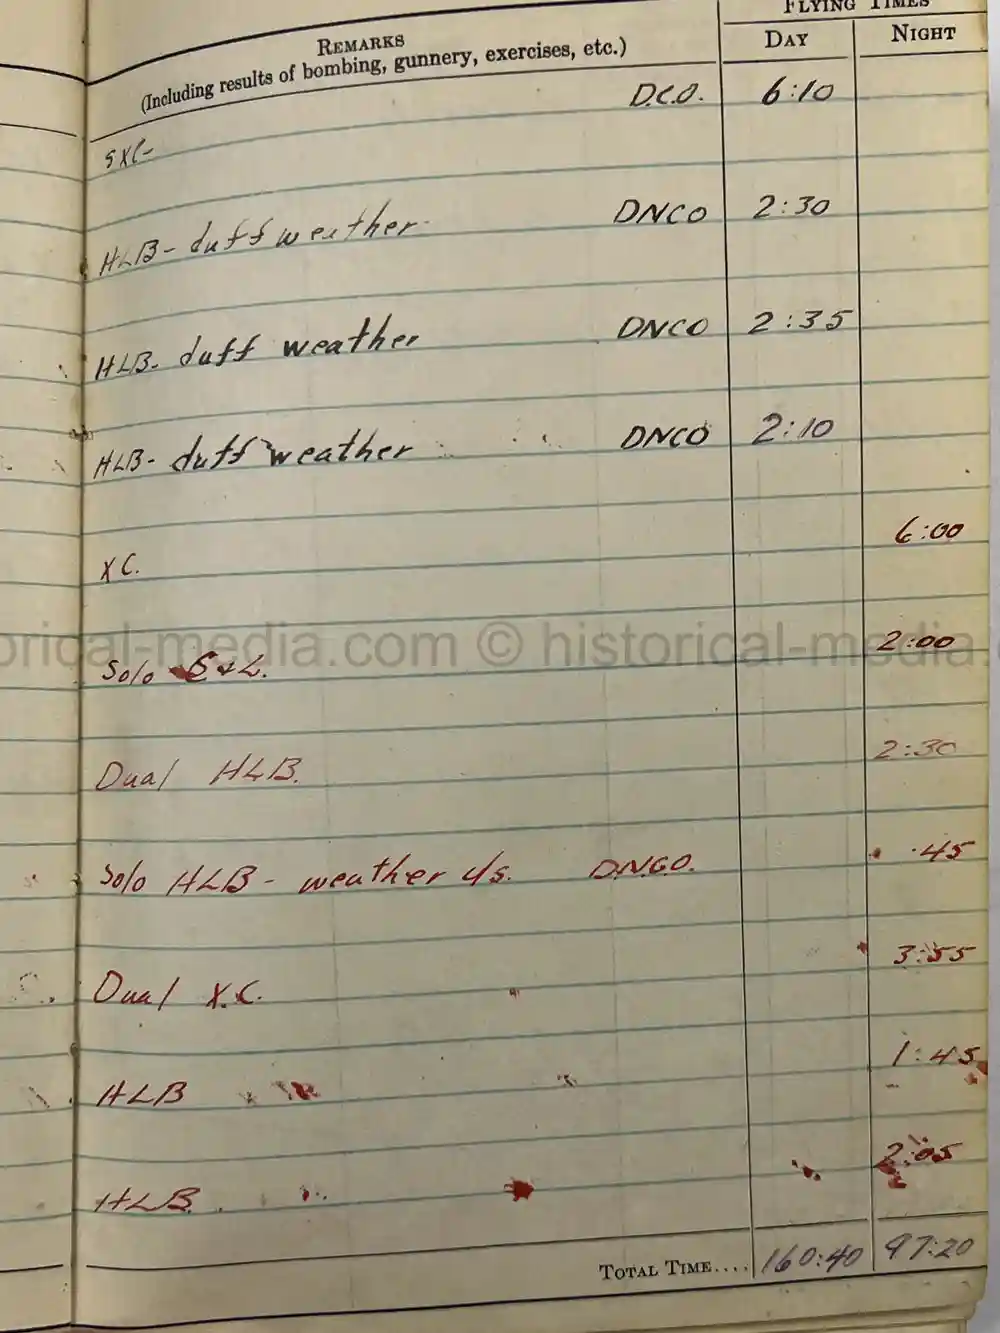 FLYING TIMES
REMARKS
(Including results of bombing, gunnery, exercises, etc.)
DAY NIGHT
D.C.O. 6:10
SXC-
HLB- duff weather DNCO 2:30
HLB- duff weather DNCO 2:35
HLB- duff weather DNCO 2:10
6:00
XC.
orical-media.com © historical-media.
2:00
Solo C & L.
2:30
Dual HLB.
Solo HLB - weather u/s. D.N.C.O. .45
3:55
Dual X.C.
1:45
HLB
2:05
HLB.
TOTAL TIME.... 160:40 97:20